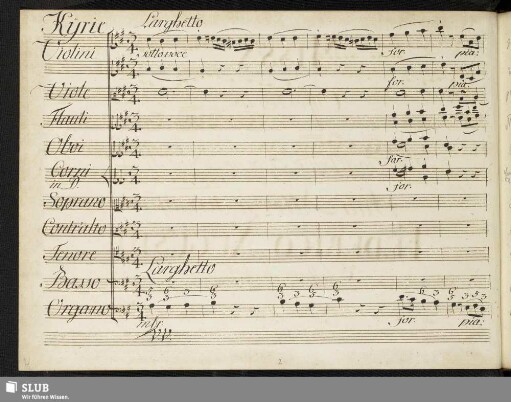 Kyrie Larghetto
Violini sotto voce for. pia:
for. pia:
Viole
Flauti
Oboi
for.
Corni
in D. for.
Soprano
Contralto
Tenore
Larghetto
Basso
Organo
for. pia:
2
SLUB
Wir führen Wissen.